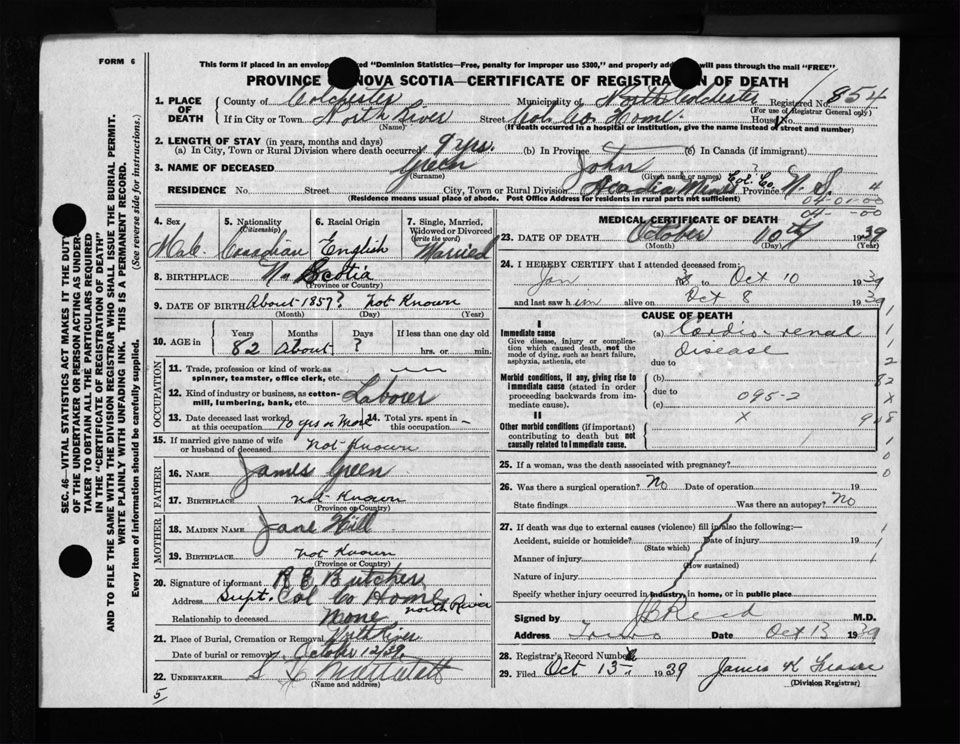 FORM 6
This form if placed in an envelop ed "Dominion Statistics—Free, penalty for improper use $300," and properly add will pass through the mail "FREE".
PROVINCE NOVA SCOTIA—CERTIFICATE OF REGISTRAT N OF DEATH
1. PLACE OF DEATH
County of Colchester Municipality of North Colchester Registered No. 854
(For use of Registrar General only)
If in City or Town North River Street Col. Co. Home House No.
(Name) (If death occurred in a hospital or institution, give the name instead of street and number)
2. LENGTH OF STAY (in years, months and days)
(a) In City, Town or Rural Division where death occurred 9 yrs. (b) In Province (c) In Canada (if immigrant)
3. NAME OF DECEASED Green John
(Surname) (Given name or names)
RESIDENCE No. Street City, Town or Rural Division Acadia Mines Col. Co Province N. S. 4
(Residence means usual place of abode. Post Office Address for residents in rural parts not sufficient)
04-01-00
04- -00
4. Sex 5. Nationality (Citizenship) 6. Racial Origin 7. Single, Married, Widowed or Divorced (write the word)
Male Canadian English Married
8. BIRTHPLACE Na Scotia
(Province or Country)
9. DATE OF BIRTH About 1857? not Known
(Month) (Day) (Year)
10. AGE in Years Months Days If less than one day old
82 About ? hrs. or min.
OCCUPATION
11. Trade, profession or kind of work as spinner, teamster, office clerk, etc.
12. Kind of industry or business, as cotton-mill, lumbering, bank, etc. Laborer
13. Date deceased last worked at this occupation 10 yrs or more 14. Total yrs. spent in this occupation —
15. If married give name of wife or husband of deceased not Known
FATHER
16. NAME James Green
17. BIRTHPLACE not Known
(Province or Country)
MOTHER
18. MAIDEN NAME Jane Hill
19. BIRTHPLACE not Known
(Province or Country)
20. Signature of informant R E Butcher
Address Supt. Col Co Home north River
Relationship to deceased None
21. Place of Burial, Cremation or Removal North River
Date of burial or removal October 12/39
22. UNDERTAKER S
(Name and address)
5
MEDICAL CERTIFICATE OF DEATH
23. DATE OF DEATH October 10th 1939
(Month) (Day) (Year)
24. I HEREBY CERTIFY that I attended deceased from:
Jan to Oct 10 1939
and last saw him alive on Oct 8 1939
CAUSE OF DEATH
I
Immediate cause
Give disease, injury or complication which caused death, not the mode of dying, such as heart failure, asphyxia, asthenia, etc
(a) Cardio-renal
disease
due to
Morbid conditions, if any, giving rise to immediate cause (stated in order proceeding backwards from immediate cause).
(b)
due to
(c) 095-2
II
Other morbid conditions (if important) contributing to death but not causally related to immediate cause.
x
1
1
2
82
x
908
1
0
0
25. If a woman, was the death associated with pregnancy?
26. Was there a surgical operation? No Date of operation 19
State findings Was there an autopsy? No
27. If death was due to external causes (violence) fill in also the following:—
Accident, suicide or homicide? Date of injury 19
(State which)
Manner of injury
(How sustained)
Nature of injury
Specify whether injury occurred in industry, in home, or in public place
1
1
1
Signed by J B Reid M.D.
Address Truro Date Oct 13 1939
28. Registrar's Record Number
29. Filed Oct 13 1939 James K
(Division Registrar)
SEC. 46—VITAL STATISTICS ACT MAKES IT THE DUTY
OF THE UNDERTAKER OR PERSON ACTING AS UNDER-
TAKER TO OBTAIN ALL THE PARTICULARS REQUIRED
IN THE "CERTIFICATE OF REGISTRATION OF DEATH"
AND TO FILE THE SAME WITH THE DIVISION REGISTRAR WHO SHALL ISSUE THE BURIAL PERMIT.
WRITE PLAINLY WITH UNFADING INK. THIS IS A PERMANENT RECORD.
Every item of information should be carefully supplied. (See reverse side for instructions.)